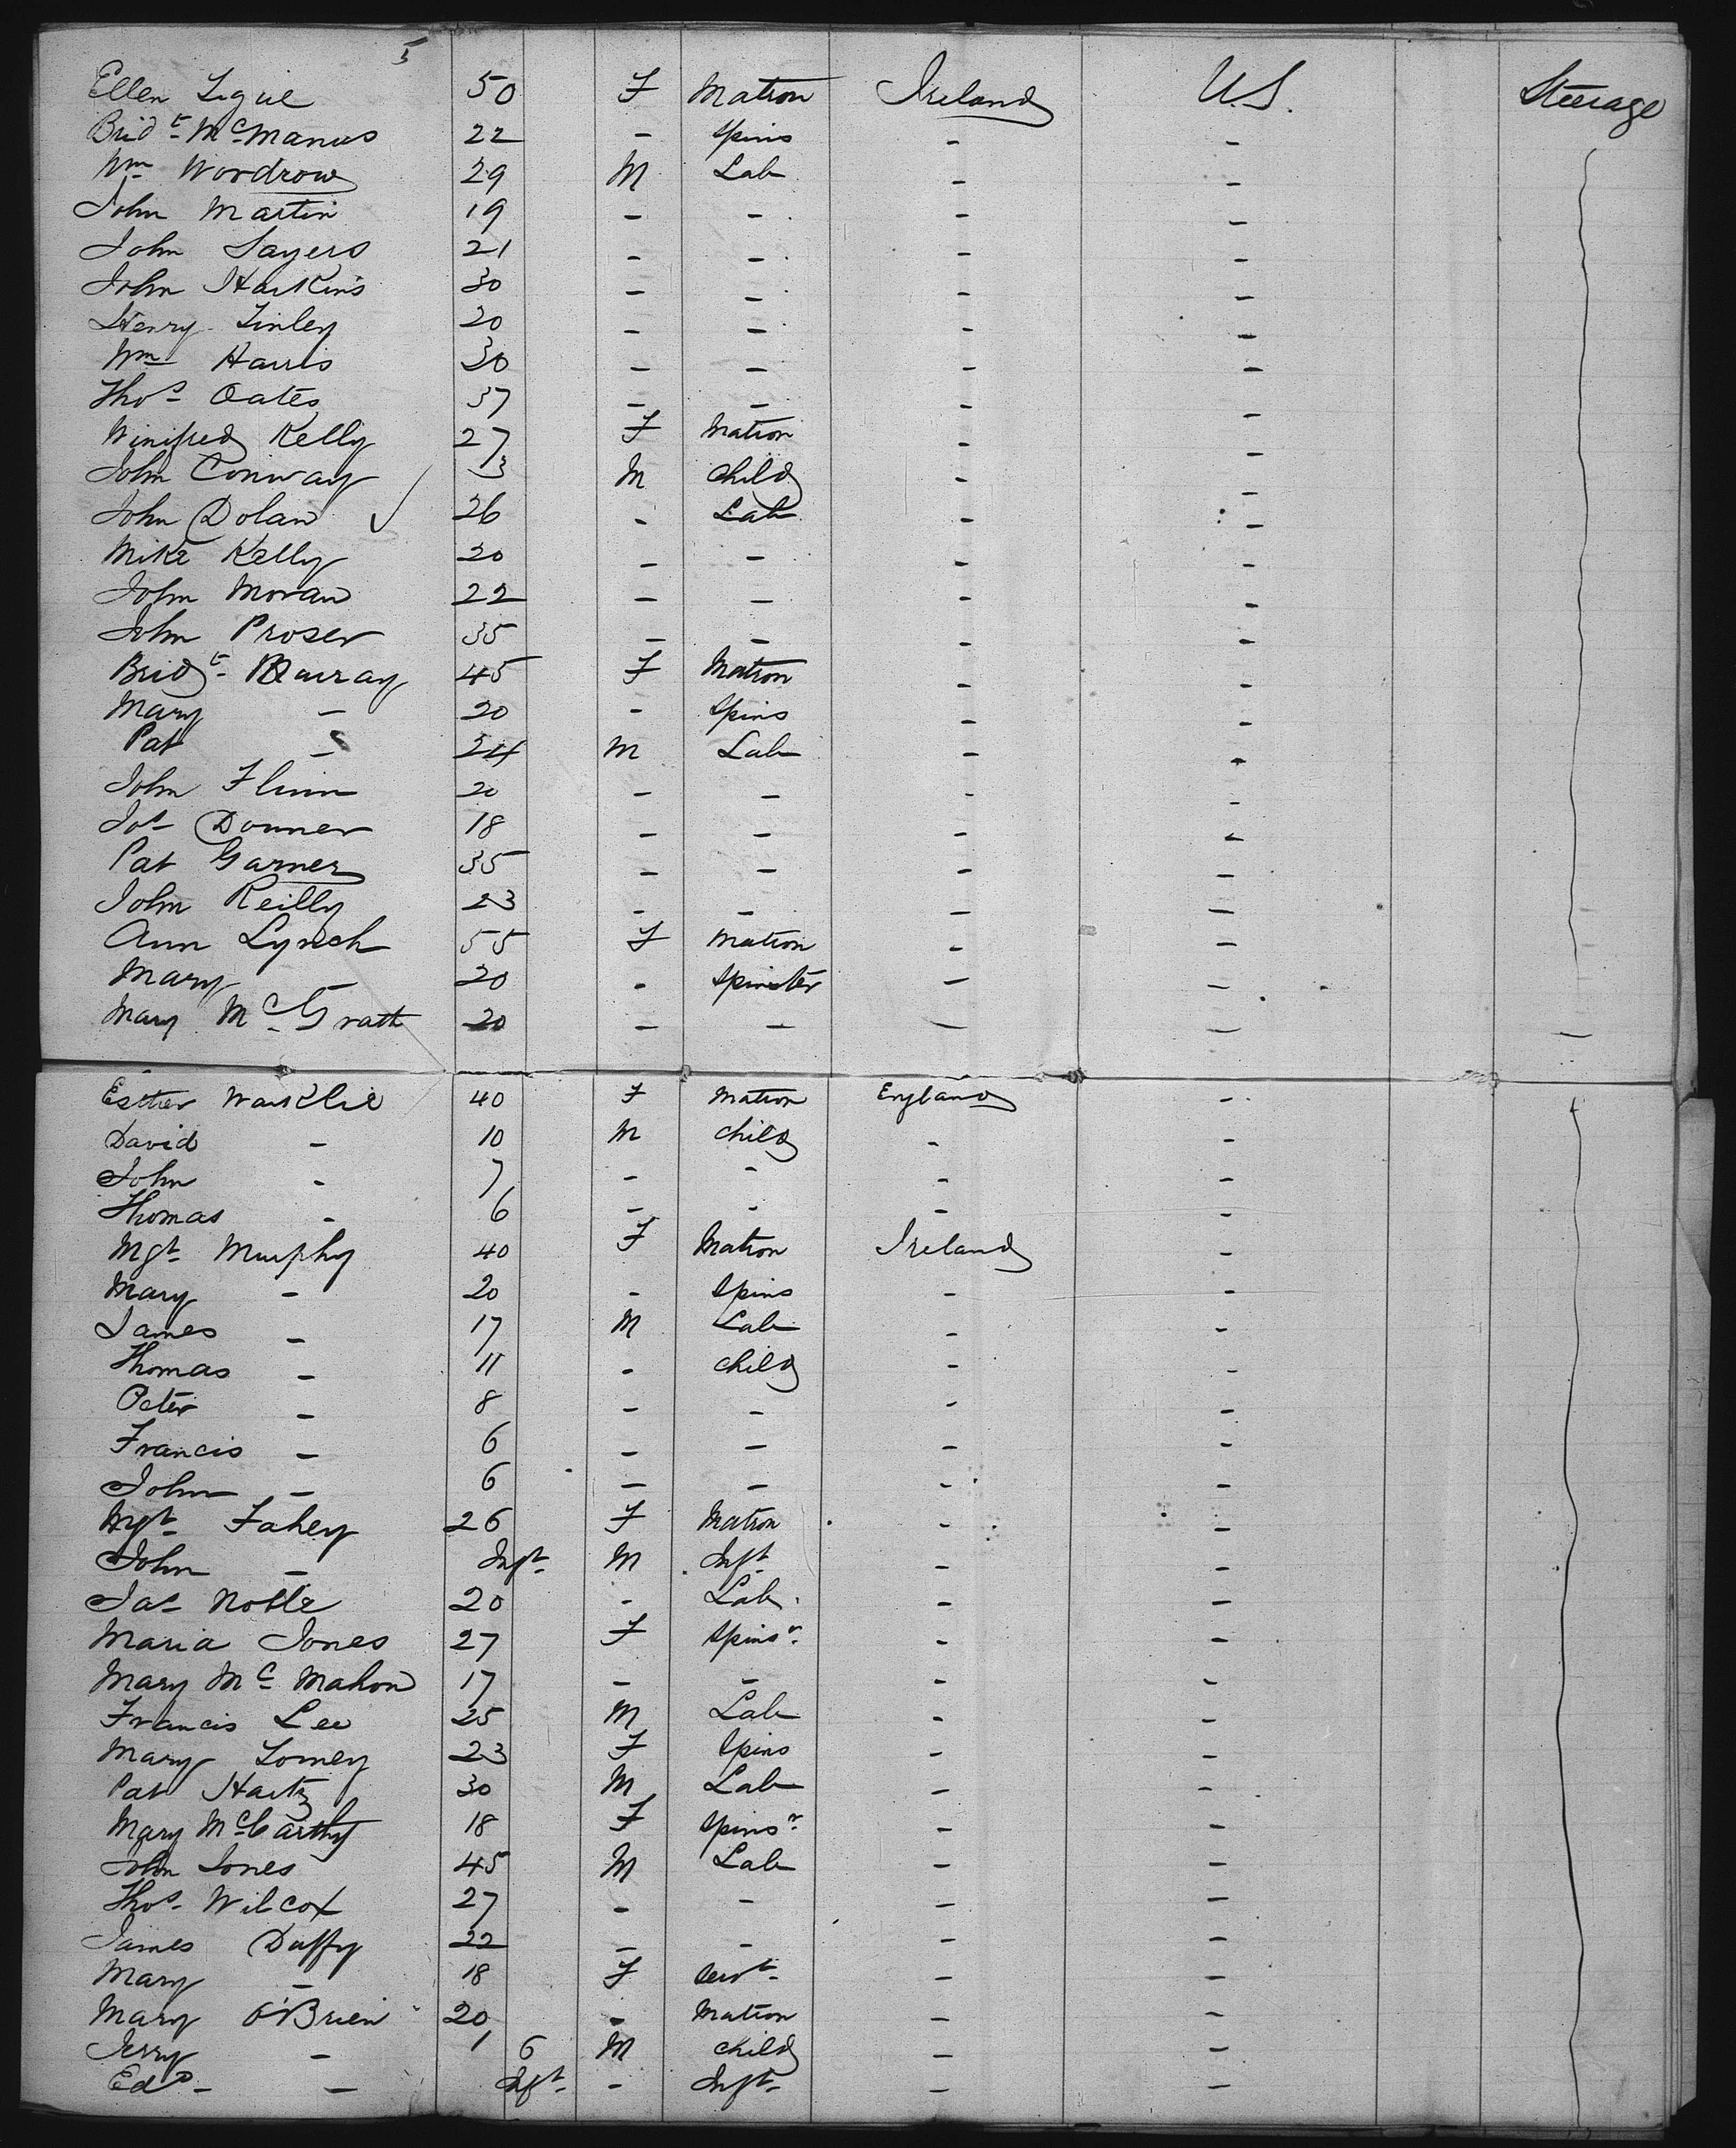 5
Ellen 50 F Matron Ireland U.S. Steerage
Bridt McManus 22 – Spins – –
Wm Woodrow 29 M Lab – –
John Martin 19 – – – –
John Sayers 21 – – – –
John Harkins 30 – – – –
Henry Finley 20 – – – –
Wm Harris 30 – – – –
Thos Oates 37 – – – –
Winifred Kelly 27 F Matron – –
John Conway 3 M Child – –
John Dolan ✓ 26 – Lab – –
Mike Kelly 20 – – – –
John Moran 22 – – – –
John Proser 35 – – – –
Bridt Murray 45 F Matron – –
Mary – 20 – Spins – –
Pat – 24 M Lab – –
John Flinn 20 – – – –
Jos Donner 18 – – – –
Pat Garner 35 – – – –
John Reilly 23 – – – –
Ann Lynch 55 F Matron – –
Mary – 20 – Spinster – –
Mary McGrath 20 – – – – –
Esther 40 F Matron England –
David – 10 M Child – –
John – 7 – – – –
Thomas – 6 – – – –
Mgt Murphy 40 F Matron Ireland –
Mary – 20 – Spins – –
James – 17 M Lab – –
Thomas – 11 – Child – –
Peter – 8 – – – –
Francis – 6 – – – –
John – 6 – – – –
Mgt Fahey 26 F Matron – –
John – Inft M Inft – –
Jas Noble 20 – Lab – –
Maria Jones 27 F Spinsr – –
Mary McMahon 17 – – – –
Francis Lee 25 M Lab – –
Mary Tomey 23 F Spins – –
Pat 30 M Lab – –
Mary McCarthy 18 F Spinsr – –
John Jones 45 M Lab – –
Thos Wilcox 27 – – – –
James Duffy 22 – – – –
Mary – 18 F Servt – –
Mary O'Brien 20 – Matron – –
Jerry – 1 6 M Child – –
Edd – Inft – Inft – –